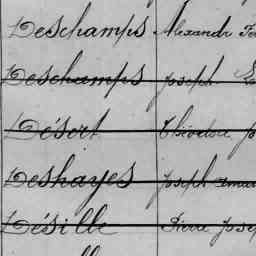 Deschamps Alexandr
Deschamps Joseph
Désert Théodore
Deshayes Joseph
Désille Pierre Josep